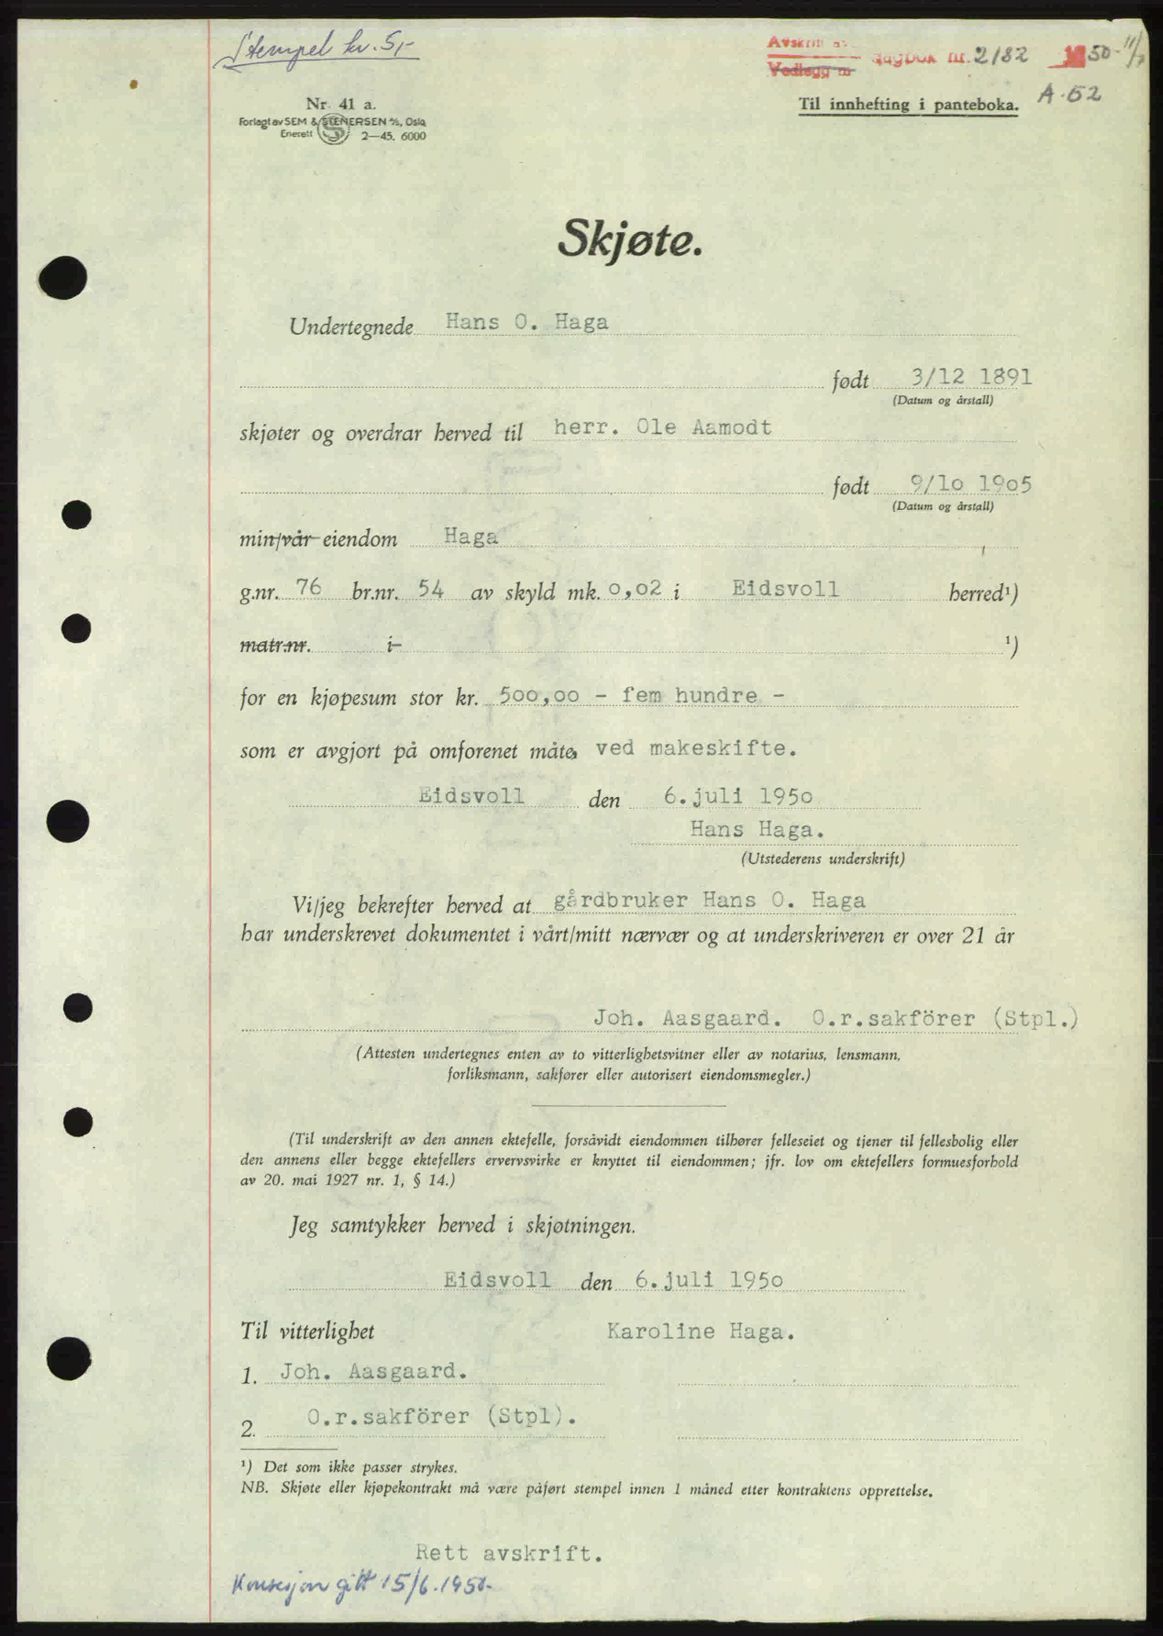 Stempel kr. 5,-
Avskrift av dagbok nr. 2182 1950 - 11/7
Vedlegg nr
A-52
Nr. 41 a.
Forlagt av SEM & STENERSEN A/S, Oslo
Enerett 2—45. 6000
Til innhefting i panteboka.
Skjøte.
Undertegnede Hans O. Haga
født 3/12 1891
(Datum og årstall)
skjøter og overdrar herved til herr. Ole Aamodt
født 9/10 1905
(Datum og årstall)
min/vår eiendom Haga
g.nr. 76 br.nr. 54 av skyld mk. 0,02 i Eidsvoll herred¹)
matr.nr. i ¹)
for en kjøpesum stor kr. 500,00 - fem hundre -
som er avgjort på omforenet måte, ved makeskifte.
Eidsvoll den 6. juli 1950
Hans Haga.
(Utstederens underskrift)
Vi/jeg bekrefter herved at gårdbruker Hans O. Haga
har underskrevet dokumentet i vårt/mitt nærvær og at underskriveren er over 21 år
Joh. Aasgaard. O.r.sakförer (Stpl.)
(Attesten undertegnes enten av to vitterlighetsvitner eller av notarius, lensmann,
forliksmann, sakfører eller autorisert eiendomsmegler.)
(Til underskrift av den annen ektefelle, forsåvidt eiendommen tilhører felleseiet og tjener til fellesbolig eller
den annens eller begge ektefellers ervervsvirke er knyttet til eiendommen; jfr. lov om ektefellers formuesforhold
av 20. mai 1927 nr. 1, § 14.)
Jeg samtykker herved i skjøtningen.
Eidsvoll den 6. juli 1950
Til vitterlighet Karoline Haga.
1. Joh. Aasgaard.
2. O.r.sakförer (Stpl).
¹) Det som ikke passer strykes.
NB. Skjøte eller kjøpekontrakt må være påført stempel innen 1 måned etter kontraktens opprettelse.
Rett avskrift.
Konsesjon gitt 15/6.1950.